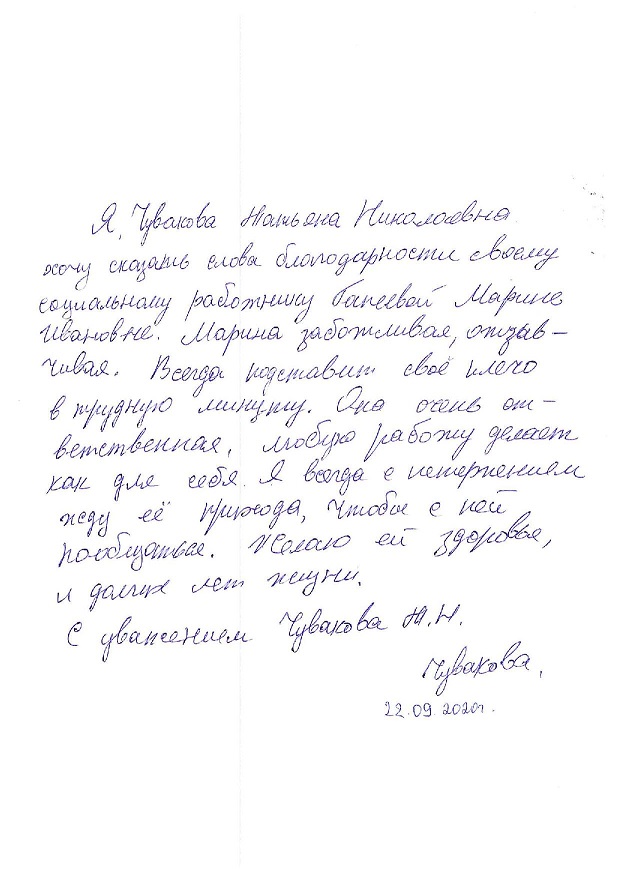 Я, Чувакова Татьяна Николаевна
хочу сказать слова благодарности своему
социальному работнику Ганеевой Марине
Ивановне. Марина заботливая, отзыв-
чивая. Всегда подставит своё плечо
в трудную минуту. Она очень от-
ветственная, любую работу делает
как для себя. Я всегда с нетерпением
жду её прихода, чтобы с ней
пообщаться. Желаю ей здоровья,
и долгих лет жизни.
С уважением Чувакова Т.Н.
Чувакова.
22.09.2020г.